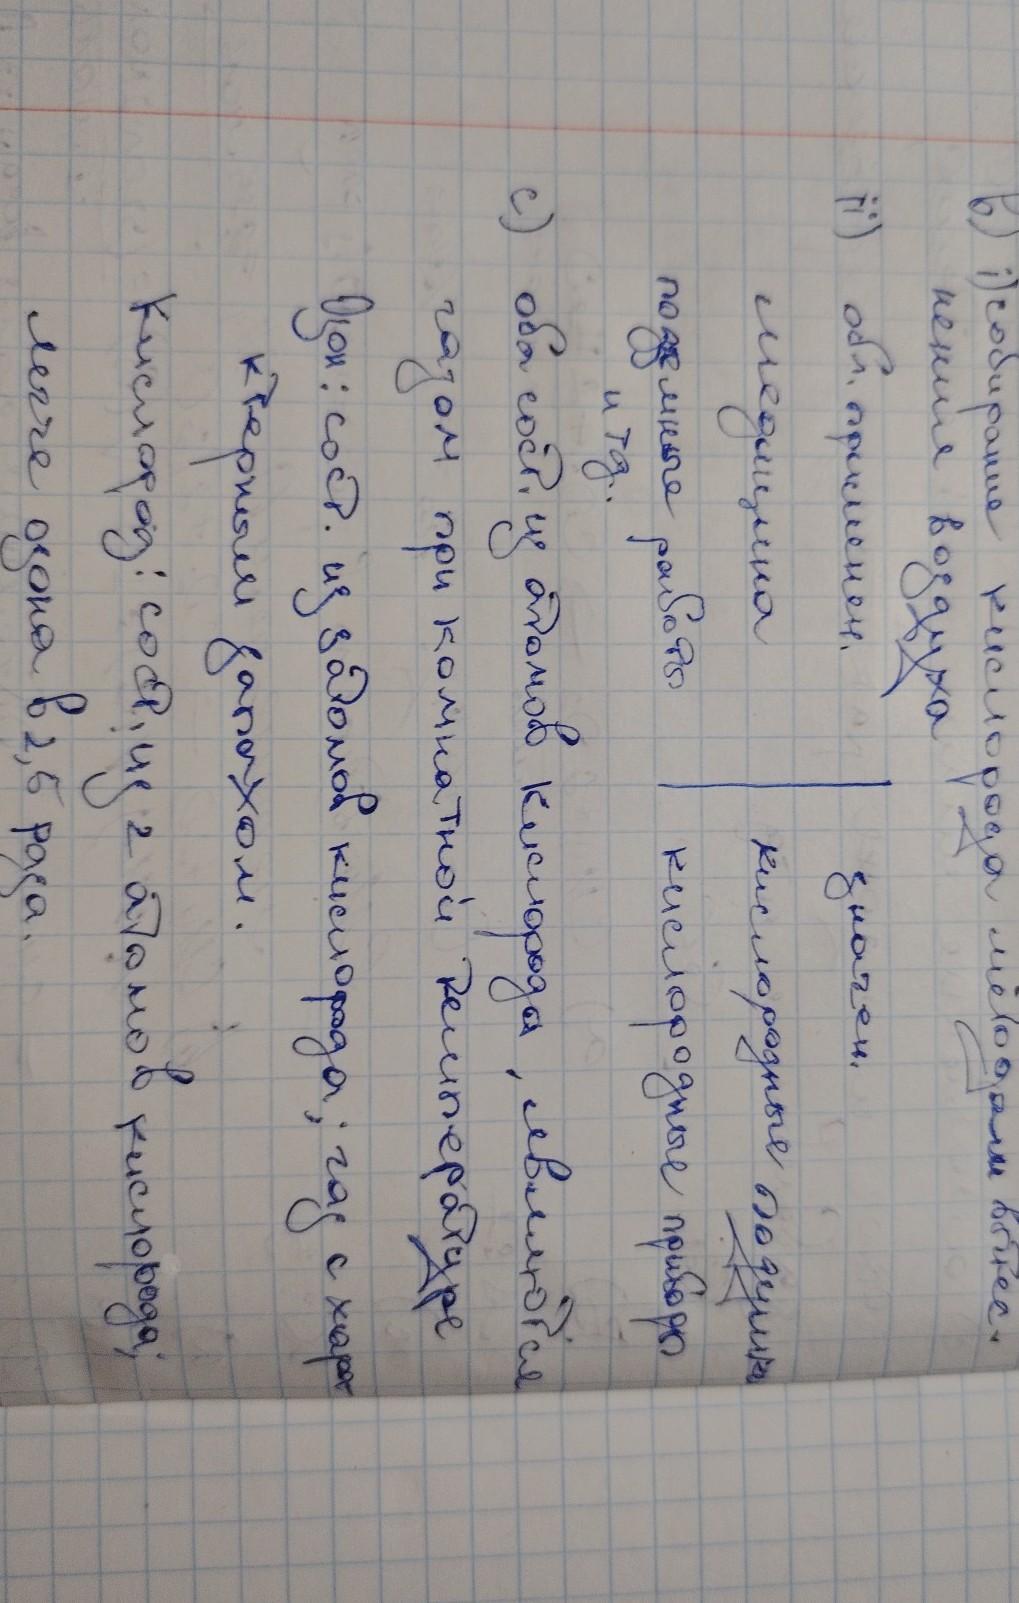 b) i) собирание кислорода методам вытес-
нения воздуха
ii) обл. применен. значен.
медицина кислородные подушки
подземные работы кислородные приборы
и тд.
c) оба сост. из атомов кислорода, являются
газом при комнатной температуре
Озон: сост. из 3 атомов кислорода; газ с харак
ктерным запахом.
Кислород: сост. из 2 атомов кислорода;
легче озона в 2,5 раза.